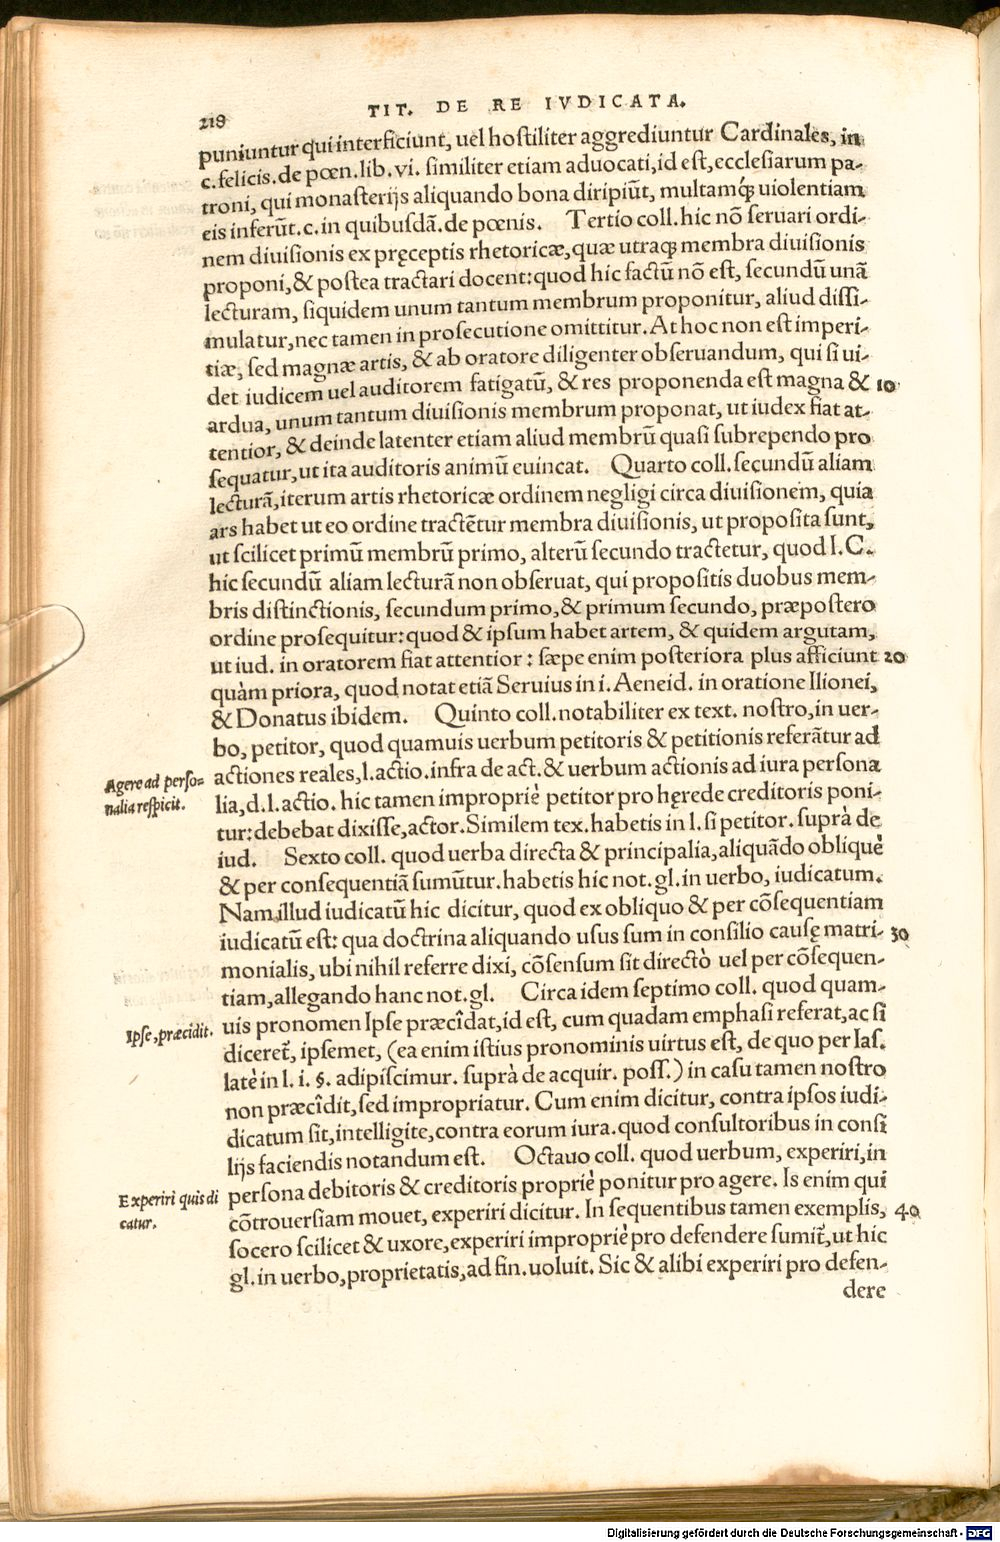 218
TIT. DE RE IVDICATA.
puniuntur qui interficiunt, uel hoſtiliter aggrediuntur Cardinales, in
c. felicis. de pœn. lib. vi. ſimiliter etiam aduocati, id eſt, eccleſiarum pa-
troni, qui monaſterijs aliquando bona diripiūt, multamq́; uiolentiam
eis inferūt. c. in quibuſdā. de pœnis. Tertio coll. hic nō ſeruari ordi-
nem diuiſionis ex pręceptis rhetoricæ, quæ utraq; membra diuiſionis
proponi, & poſtea tractari docent: quod hic factū nō eſt, ſecundū unā
lecturam, ſiquidem unum tantum membrum proponitur, aliud diſſi-
mulatur, nec tamen in proſecutione omittitur. At hoc non eſt imperi-
tiæ, ſed magnæ artis, & ab oratore diligenter obſeruandum, qui ſi ui-
det iudicem uel auditorem fatigatū, & res proponenda eſt magna & 10
ardua, unum tantum diuiſionis membrum proponat, ut iudex fiat at-
tentior, & deinde latenter etiam aliud membrū quaſi ſubrependo pro
ſequatur, ut ita auditoris animū euincat. Quarto coll. ſecundū aliam
lecturā, iterum artis rhetoricæ ordinem negligi circa diuiſionem, quia
ars habet ut eo ordine tractētur membra diuiſionis, ut propoſita ſunt,
ut ſcilicet primū membrū primo, alterū ſecundo tractetur, quod I. C.
hic ſecundū aliam lecturā non obſeruat, qui propoſitis duobus mem-
bris diſtinctionis, ſecundum primo, & primum ſecundo, præpoſtero
ordine proſequitur: quod & ipſum habet artem, & quidem argutam,
ut iud. in oratorem fiat attentior: ſæpe enim poſteriora plus afficiunt 20
quàm priora, quod notat etiā Seruius in i. Aeneid. in oratione Ilionei,
& Donatus ibidem. Quinto coll. notabiliter ex text. noſtro, in uer-
bo, petitor, quod quamuis uerbum petitoris & petitionis referātur ad
Agere ad perſo-
nalia reſpicit.
actiones reales, l. actio. infra de act. & uerbum actionis ad iura perſona
lia, d. l. actio. hic tamen impropriè petitor pro hęrede creditoris poni-
tur: debebat dixiſſe, actor. Similem tex. habetis in l. ſi petitor. ſuprà de
iud. Sexto coll. quod uerba directa & principalia, aliquādo obliquè
& per conſequentiā ſumūtur. habetis hic not. gl. in uerbo, iudicatum.
Nam illud iudicatū hic dicitur, quod ex obliquo & per cōſequentiam
iudicatū eſt: qua doctrina aliquando uſus ſum in conſilio cauſę matri- 30
monialis, ubi nihil referre dixi, cōſenſum ſit directò uel per cōſequen-
tiam, allegando hanc not. gl. Circa idem ſeptimo coll. quod quam-
Ipſe, præcidit.
uis pronomen Ipſe præcîdat, id eſt, cum quadam emphaſi referat, ac ſi
diceret̃, ipſemet, (ea enim iſtius pronominis uirtus eſt, de quo per Iaſ.
latè in l. i. §. adipiſcimur. ſuprà de acquir. poſſ.) in caſu tamen noſtro
non præcîdit, ſed impropriatur. Cum enim dicitur, contra ipſos iudi-
dicatum ſit, intelligite, contra eorum iura. quod conſultoribus in conſi
lijs faciendis notandum eſt. Octauo coll. quod uerbum, experiri, in
Experiri quis di
catur.
perſona debitoris & creditoris propriè ponitur pro agere. Is enim qui
cōtrouerſiam mouet, experiri dicitur. In ſequentibus tamen exemplis, 40
ſocero ſcilicet & uxore, experiri impropriè pro defendere ſumit̃, ut hic
gl. in uerbo, proprietatis, ad fin. uoluit. Sic & alibi experiri pro defen-
dere
Digitalisierung gefördert durch die Deutsche Forschungsgemeinschaft - DFG